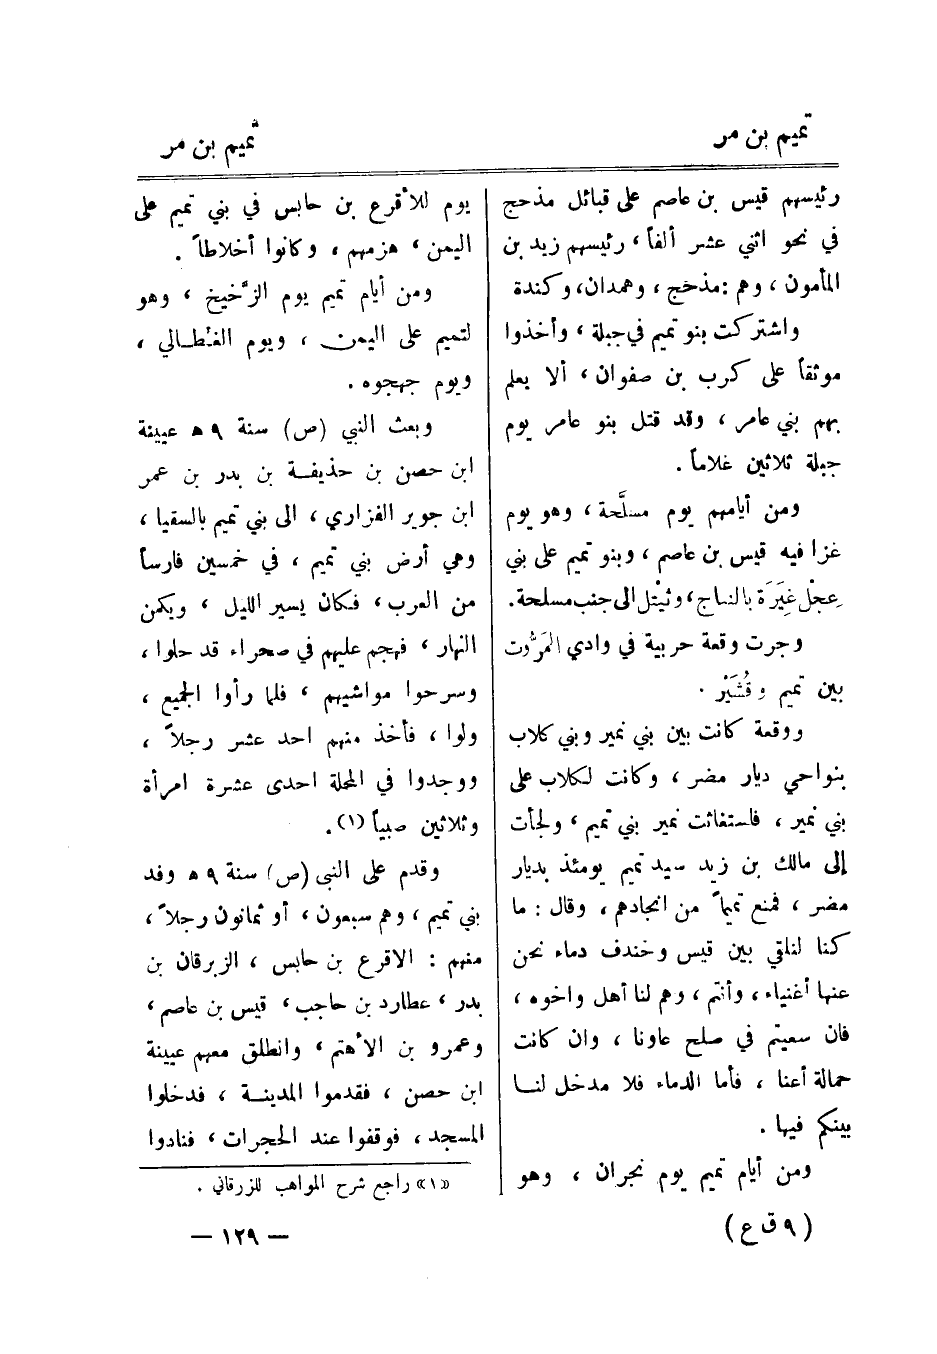 تميم بن مر
تميم بن مر
رئيسهم قيس بن عاصم على قبائل مذحج
في نحو اثني عشر ألفاً ، رئيسهم زيد بن
المأمون ، وهم : مذحج ، وهمدان، وكندة
واشتركت بنو تميم في جبلة ، وأخذوا
موثقاً على كرب بن صفوان ، ألا يعلم
بهم بني عامر ، وقد قتل بنو عامر يوم
جبلة ثلاثين غلاماً .
ومن أيامهم يوم مسلَّحة ، وهو يوم
غزا فيه قيس بن عاصم ، وبنو تميم على بني
عِجْل غِيَرَة بالنباج ، وثيْتل الى جنب مسلحة .
وجرت وقعة حربية في وادي المَرُّوت
بين تميم وقُشَيْر .
ووقعة كانت بين بني نمير وبني كلاب
بنواحي ديار مضر ، وكانت لكلاب على
بني نمير ، فاستغاثت نمير بني تميم ، ولجأت
إلى مالك بن زيد سيد تميم يومئذ بديار
مضر ، فمنع تميماً من انجادهم ، وقال : ما
كنا لنلقي بين قيس وخندف دماء نحن
عنها أغنياء ، وأنتم ، وهم لنا أهل واخوه ،
فان سعيتم في صلح عاونا ، وان كانت
حمالة أعنا ، فأما الدماء فلا مدخل لنا
بينكم فيها .
ومن أيام تميم يوم نجران ، وهو
يوم للأقرع بن حابس في بني تميم على
اليمن ، هزمهم ، وكانوا أخلاطاً .
ومن أيام تميم يوم الزَّخيخ ، وهو
لتميم على اليمن ، ويوم الغُطالي ،
ويوم جهجوه .
وبعث النبي (ص) سنة ٩ ه‍ عيينة
ابن حصن بن حذيفة بن بدر بن عمر
ابن جوير الفزاري ، الى بني تميم بالسقيا ،
وهي أرض بني تميم ، في خمسين فارساً
من العرب ، فكان يسير الليل ، ويكمن
النهار ، فهجم عليهم في صحراء قد حلوا ،
وسرحوا مواشيهم ، فلما رأوا الجميع ،
ولوا ، فأخذ منهم احد عشر رجلاً ،
ووجدوا في المحلة احدى عشرة امرأة
وثلاثين صبياً (١).
وقدم على النبي (ص) سنة ٩ ه‍ وفد
بني تميم ، وهم سبعون ، أو ثمانون رجلاً ،
منهم : الاقرع بن حابس ، الزبرقان بن
بدر ، عطارد بن حاجب ، قيس بن عاصم ،
وعمرو بن الأهتم ، وانطلق معهم عيينة
ابن حصن ، فقدموا المدينة ، فدخلوا
المسجد ، فوقفوا عند الحجرات ، فنادوا
«١» راجع شرح المواهب للزرقاني .
(٩ ق ع)
— ١٢٩ —